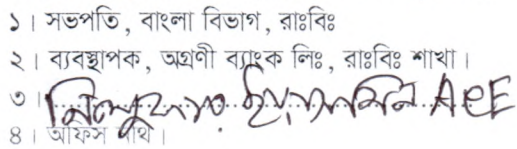 ১। সভপতি, বাংলা বিভাগ, রাঃবিঃ
২। ব্যবস্থাপক, অগ্রণী ব্যাংক লিঃ, রাঃবিঃ শাখা।
৩। নিলুফার ইয়াসমিন ACE
৪। অফিস নথি।